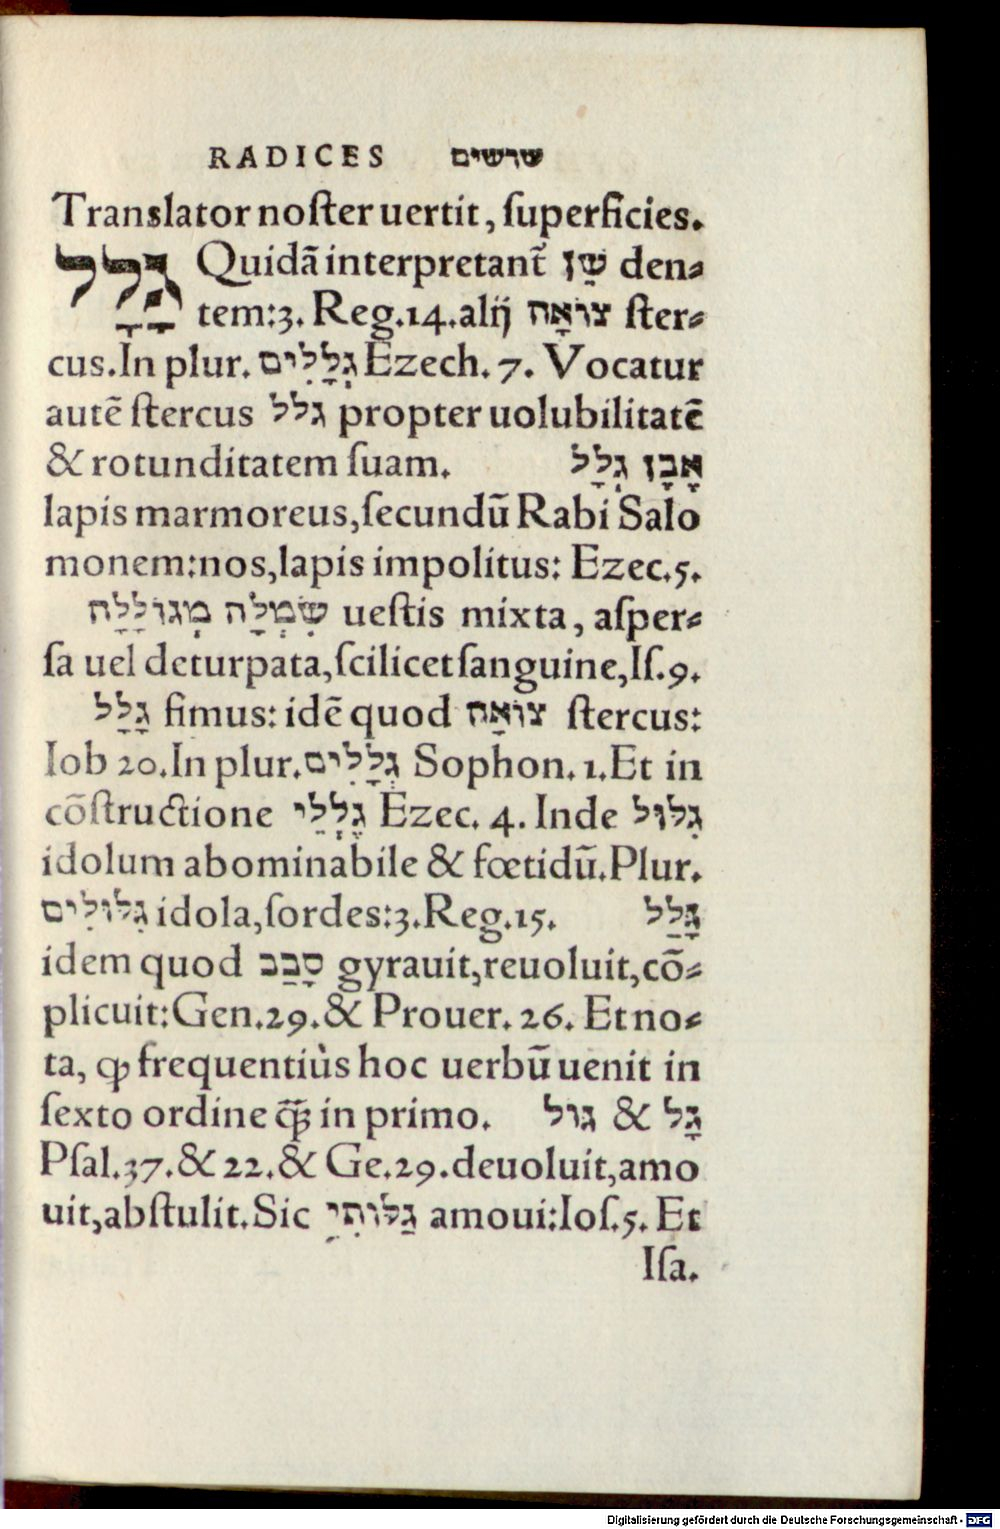 RADICES שרשים
Translator noſter uertit, ſuperficies.
גָּלָל Quidā interpretant̄ שֵׁן den⸗
tem:3. Reg.14.alij צוֹאָה ſter⸗
cus.In plur. גְלָלִים Ezech. 7. Vocatur
autē ſtercus גלל propter uolubilitatē
& rotunditatem ſuam. אֶבֶן גְלָל
lapis marmoreus,ſecundū Rabi Salo
monem:nos,lapis impolitus: Ezec.5.
שִׂמְלָה מְגוֹלָלָה ueſtis mixta, aſper⸗
ſa uel deturpata,ſcilicet ſanguine,Iſ.9.
גָלָל fimus: idē quod צוֹאָה ſtercus:
Iob 20.In plur.גְלָלִים Sophon. 1.Et in
cōſtructione גֶלְלֵי Ezec. 4. Inde גִלּוּל
idolum abominabile & fœtidū.Plur.
גִלּוּלִים idola,ſordes:3.Reg.15. גָּלַל
idem quod סָבַב gyrauit,reuoluit,cō⸗
plicuit:Gen.29.& Prouer. 26. Et no⸗
ta, ꝙ frequentiùs hoc uerbū uenit in
ſexto ordine ꝗ̄ in primo. גָּל & גול
Pſal.37.& 22.& Ge.29.deuoluit,amo
uit,abſtulit.Sic גַּלּוֹתִי amoui:Ioſ.5. Et
Iſa.
Digitalisierung gefördert durch die Deutsche Forschungsgemeinschaft - DFG